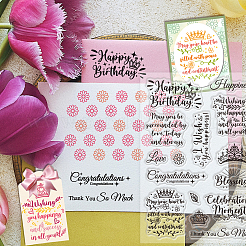 Happy
Birthday!
May your heart be
filled with peace
and contentment
Happy
Birthday!
May you be
surrounded
by love
Today and
always
Love
Wishing
you happiness!
Congratulations
Congratulations
Thank You So Much
Wishing
you happiness
and success
in all you do!
Congratulations
Congratulations
Blessing
Celebration
Moment
May your heart be
filled with peace
and contentment
Thank You So Much